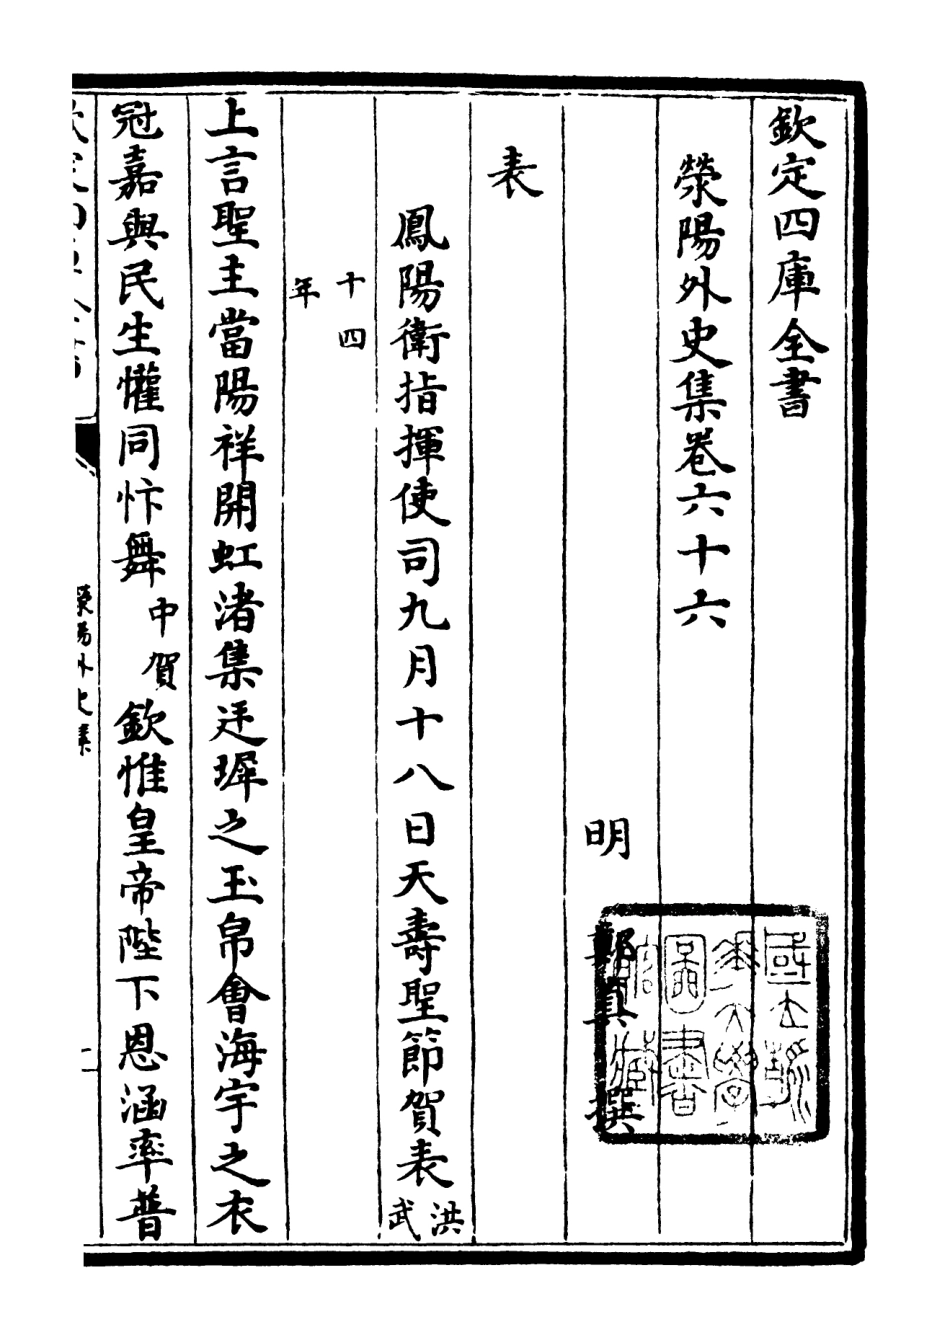 欽定四庫全書
滎陽外史集卷六十六
明 鄭真 撰
表
鳳陽衛指揮使司九月十八日天壽聖節賀表洪武
十四年
上言聖主當陽祥開虹渚集迓墀之玉帛會海宇之衣
冠嘉與民生懽同忭舞中賀欽惟皇帝陛下恩涵率普
滎陽外史集